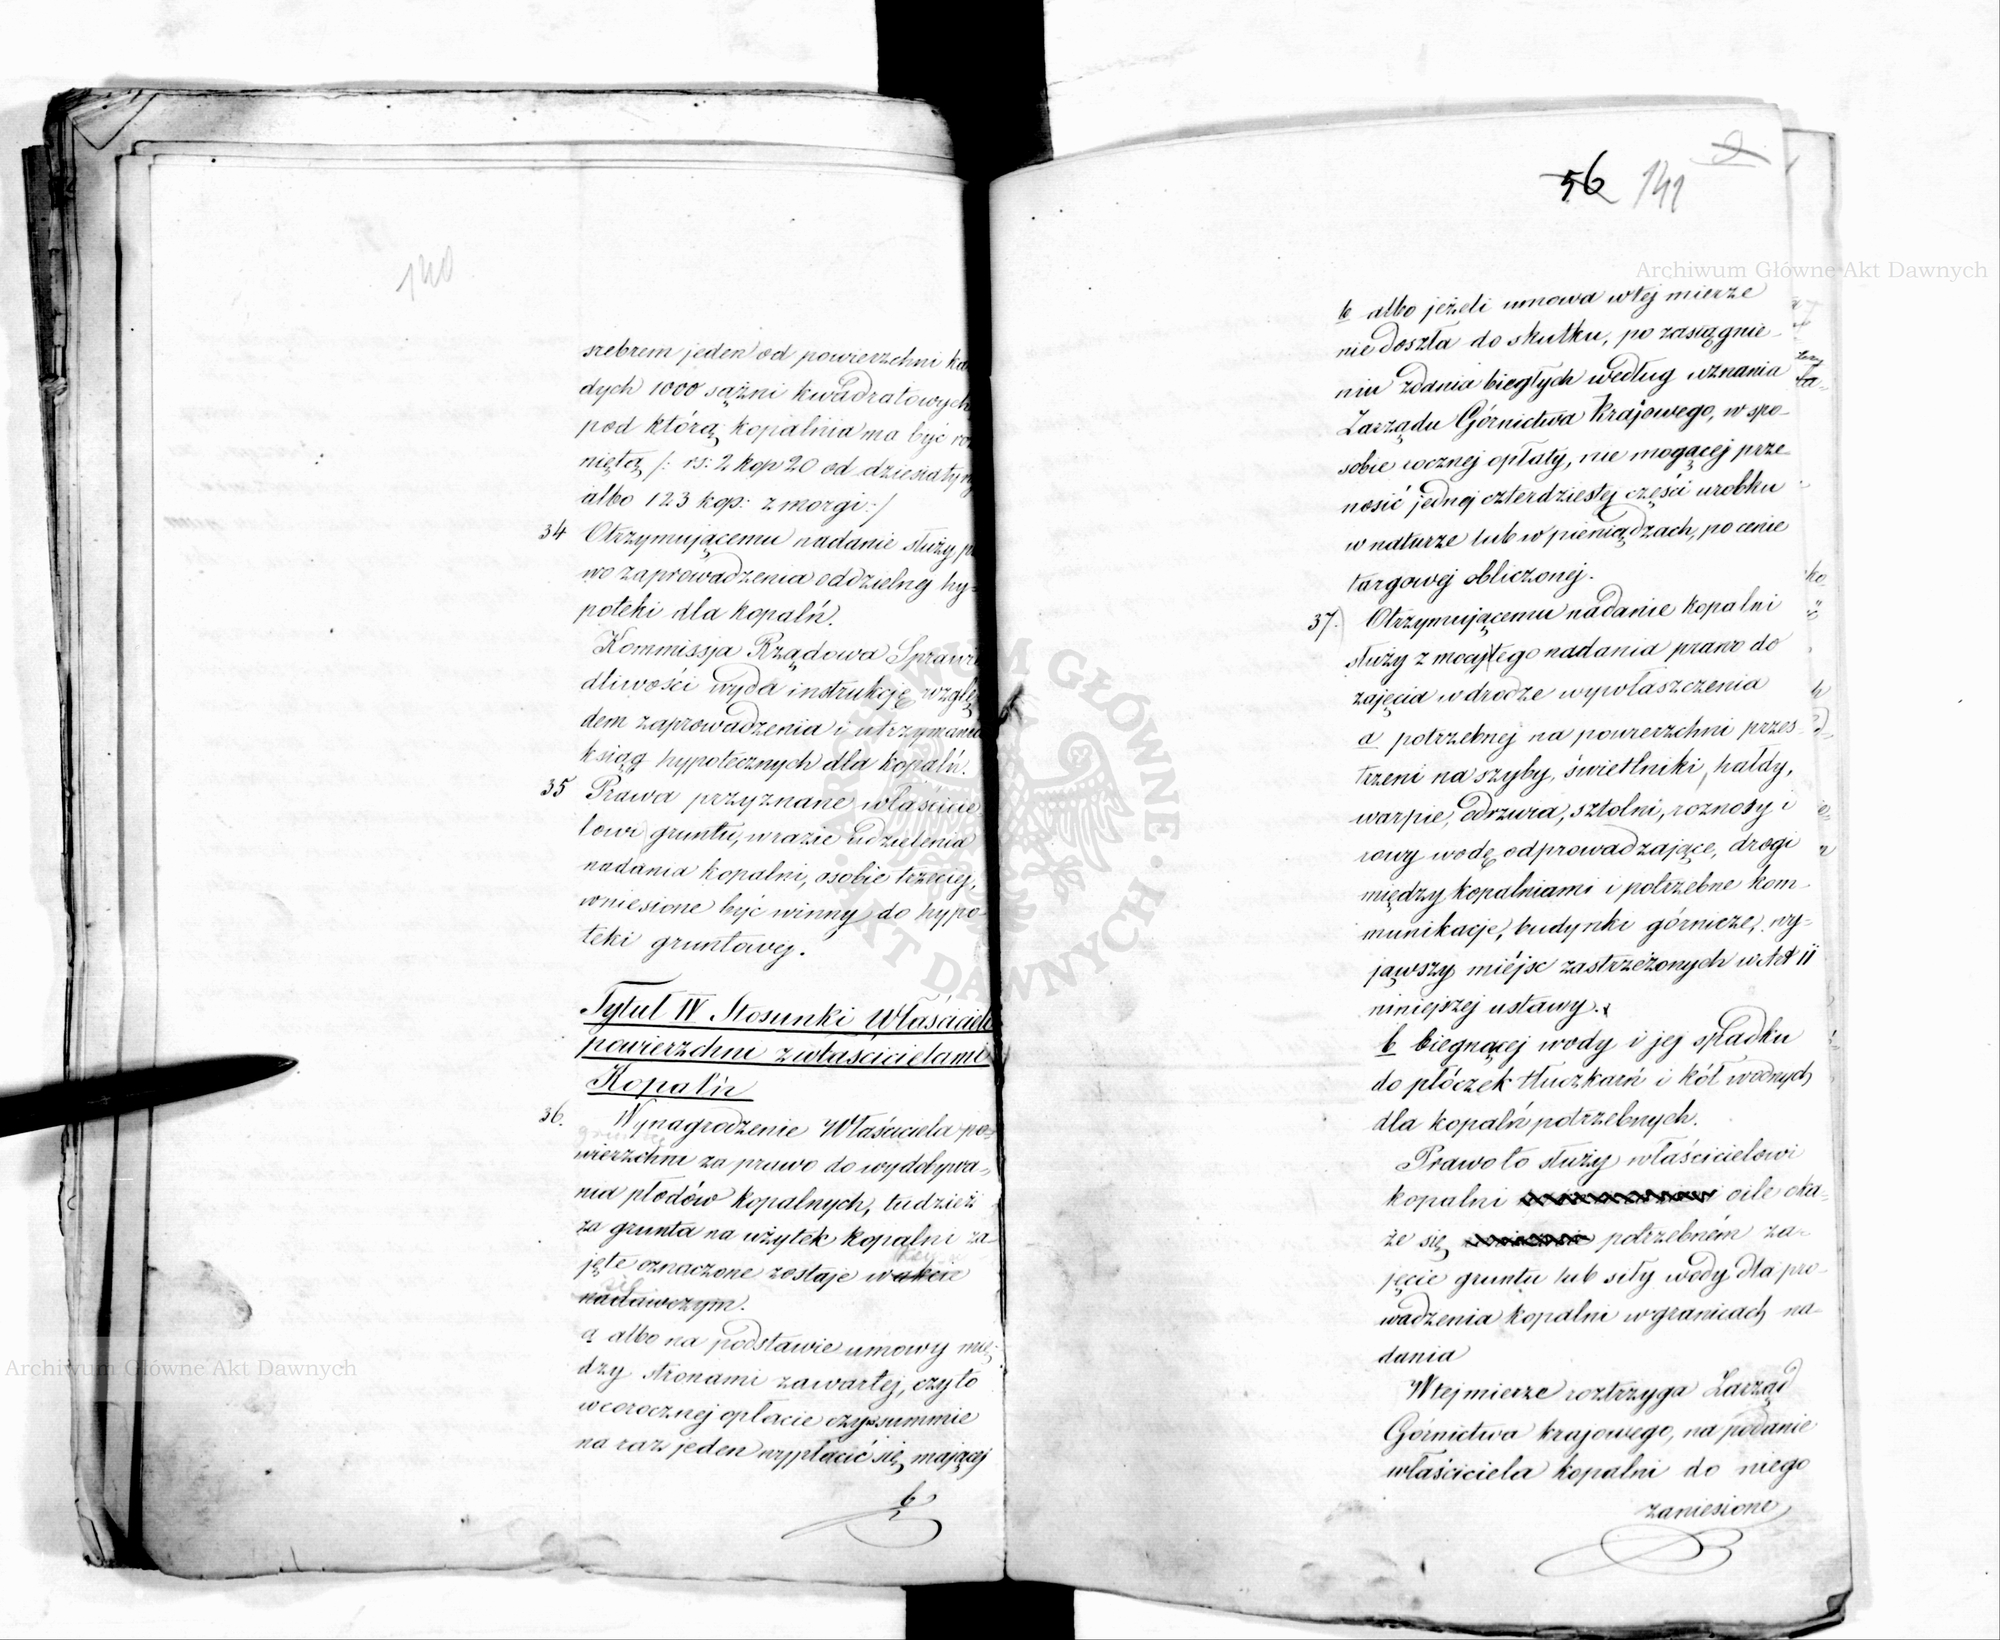 140
srebrem jeden od powierzchni ka
dych 1000 sążni kwadratowych
pod którą kopalnia ma być roz
niętą /: rs: 2 kop 20 od dziesiatyny
albo 123 kop: z morgi :/
34 Otrzymującemu nadanie służy pr
wo zaprowadzenia oddzielnej hy-
poteki dla kopalń.
Kommissja Rządowa Sprawie
dliwości wyda instrukcję wzglę
dem zaprowadzenia i utrzymania
ksiąg hypotecznych dla kopalń.
35 Prawa przyznane właścicie
lowi gruntu, w razie udzielenia
nadania kopalni, osobie trzeciej,
wniesione być winny do hypo-
teki gruntowej.
Tytuł IV Stosunki Właścicieli
powierzchni z właścicielami
Kopalń
36. Wynagrodzenie Właściciela po-
wierzchni za prawo do wydobywa-
nia płodów kopalnych, tudzież
za grunta na użytek kopalni za-
jęte oznaczone zostaje w akcie
nadawczym.
a albo na podstawie umowy mię-
dzy stronami zawartej, czy to
w corocznej opłacie czy summie
na raz jeden wypłacić się mającej
b
56 141
b albo jeżeli umowa w tej mierze
nie doszła do skutku, po zasiągnie-
niu zdania biegłych według uznania
Zarządu Górnictwa Krajowego, w spo-
sobie rocznej opłaty, nie mogącej prze-
nosić jednej czterdziestej części urobku
w naturze lub w pieniądzach, po cenie
targowej obliczonej.
37. Otrzymującemu nadanie kopalni
służy z mocy tego nadania prawo do
zajęcia w drodze wywłaszczenia
a potrzebnej na powierzchni przes
trzeni na szyby, świetlniki, hałdy,
warpie, odrzwia, sztolni, roznosy i
rowy wodę odprowadzające, drogi
między kopalniami i potrzebne kom-
munikacje, budynki górnicze, wy-
jąwszy miejsc zastrzeżonych w Art 11
niniejszej ustawy.
b biegnącej wody i jej spadku
do płóczek tłuczkarń i kół wodnych
dla kopalń potrzebnych.
Prawo to służy właścicielowi
kopalni o ile oka-
że się potrzebném za-
jęcie gruntu lub siły wody dla pro-
wadzenia kopalni w granicach na-
dania
W tej mierze roztrzyga Zarząd
Górnictwa krajowego, na podanie
właściciela kopalni do niego
zaniesione
Archiwum Główne Akt Dawnych
Archiwum Główne Akt Dawnych
ARCHIWUM GŁÓWNE AKT DAWNYCH